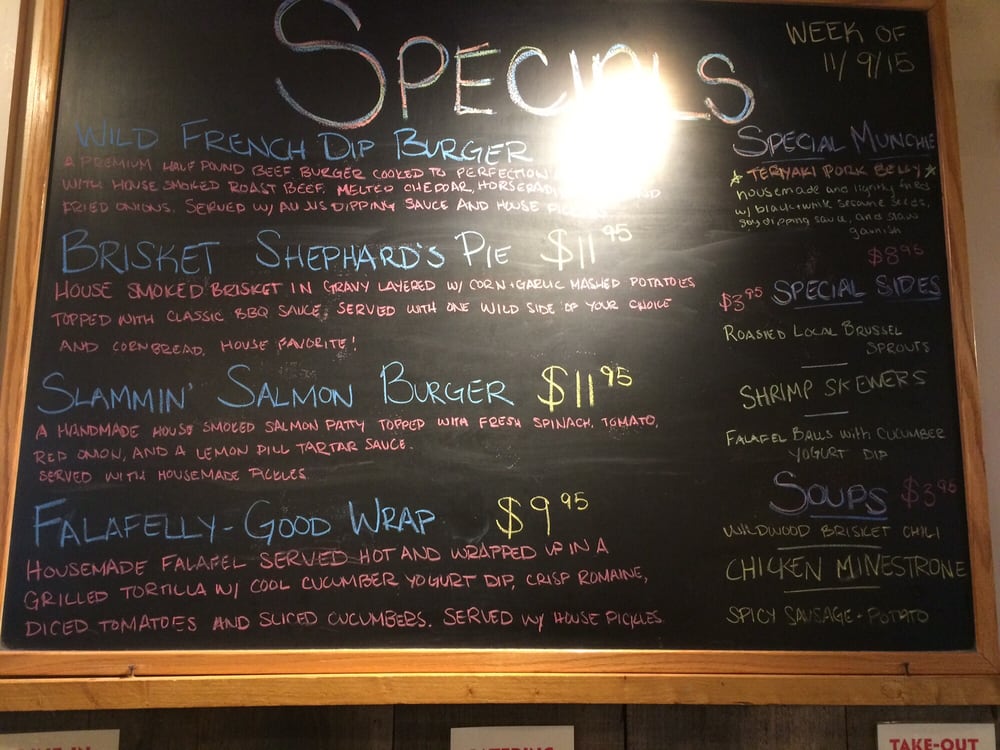 SPECIALS
WEEK OF
11/9/15
WILD FRENCH DIP BURGER
A PREMIUM HALF POUND BEEF BURGER COOKED TO PERFECTION
WITH HOUSE SMOKED ROAST BEEF, MELTED CHEDDAR, HORSERADI
FRIED ONIONS. SERVED W/ AU JUS DIPPING SAUCE AND HOUSE
BRISKET SHEPHARD'S PIE $11.95
HOUSE SMOKED BRISKET IN GRAVY LAYERED W/ CORN + GARLIC MASHED POTATOES
TOPPED WITH CLASSIC BBQ SAUCE, SERVED WITH ONE WILD SIDE OF YOUR CHOICE
AND CORNBREAD. HOUSE FAVORITE!
SLAMMIN' SALMON BURGER $11 95
A HANDMADE HOUSE SMOKED SALMON PATTY TOPPED WITH FRESH SPINACH, TOMATO,
RED ONION, AND A LEMON DILL TARTAR SAUCE.
SERVED WITH HOUSEMADE PICKLES
FALAFELLY-GOOD WRAP $9 95
HOUSEMADE FALAFEL SERVED HOT AND WRAPPED UP IN A
GRILLED TORTILLA W/ COOL CUCUMBER YOGURT DIP, CRISP ROMAINE,
DICED TOMATOES AND SLICED CUCUMBERS. SERVED W/ HOUSE PICKLES.
SPECIAL MUNCHIE
TERIYAKI PORK BELLY
housemade and lightly fried
w/ black + white sesame seeds,
soy dipping sauce, and slaw
garnish
$8 95
$3 95 SPECIAL SIDES
ROASTED LOCAL BRUSSEL
SPROUTS
SHRIMP SKEWERS
FALAFEL BALLS WITH CUCUMBER
YOGURT DIP
SOUPS $3 95
WILDWOOD BRISKET CHILI
CHICKEN MINESTRONE
SPICY SAUSAGE + POTATO
TAKE-OUT